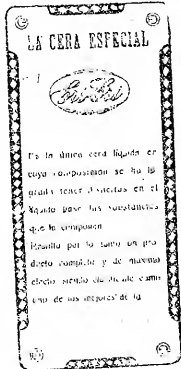 LA CERA ESPECIAL
Es la única cera líquida en
cuya composición se ha lo
grado tener disueltas en el
líquido base las sustancias
que la componen
Resulta por lo tanto un pro
ducto completo y de máximo
efecto siendo
uno de los mejores de la